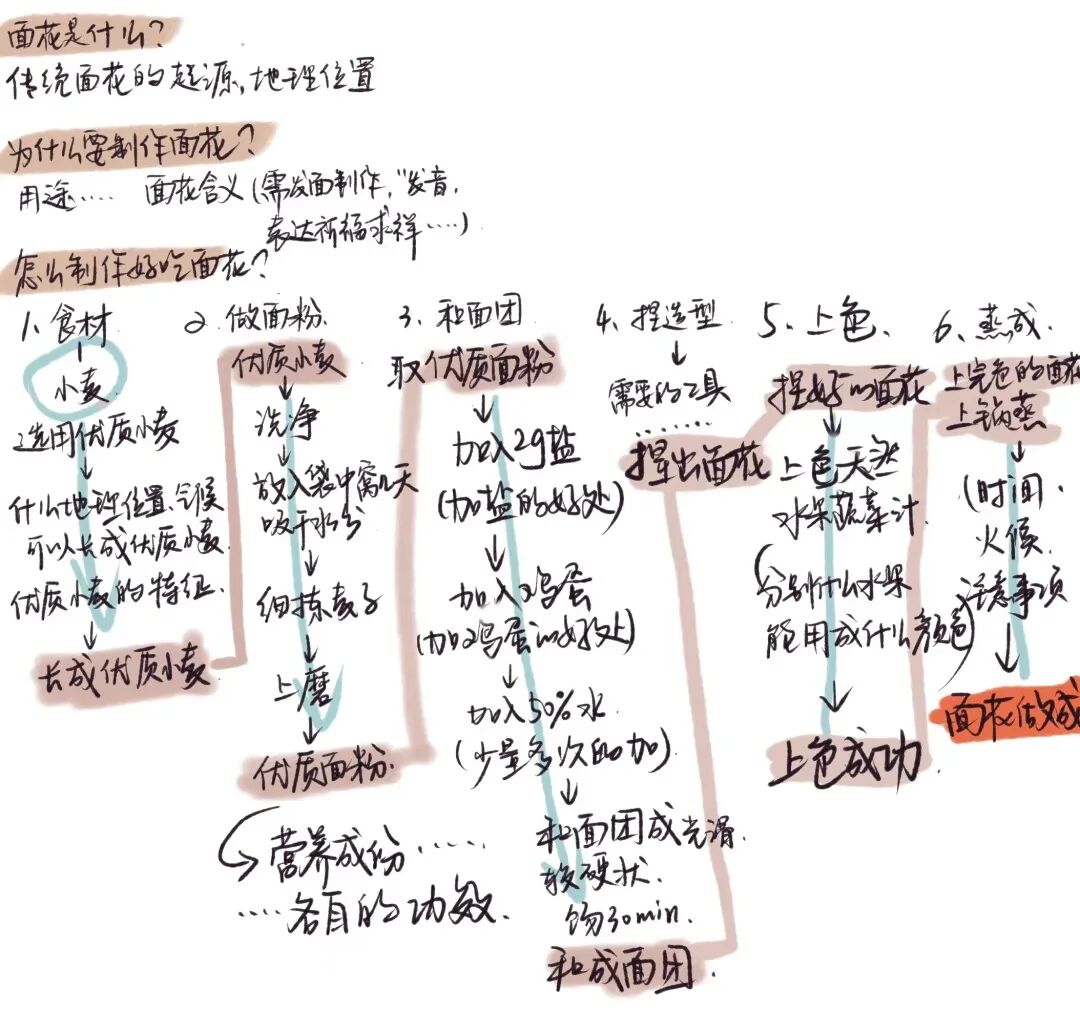 面花是什么?
传统面花的起源,地理位置
为什么要制作面花?
用途…… 面花含义(需发面制作,"发音,
表达祈福求祥……)
怎么制作好吃面花?
1、食材
小麦
选用优质小麦
什么地理位置、气候
可以长成优质小麦.
优质小麦的特征.
长成优质小麦
2、做面粉.
优质小麦
洗净
放入袋中窝几天
吸干水分
细拣麦子
上磨
优质面粉.
营养成份……
……各自的功效.
3、和面团
取优质面粉
加入2g盐
(加盐的好处)
加入鸡蛋
(加鸡蛋的好处)
加入50%水
(少量多次的加)
和面团成光滑.
较硬状.
饧30min.
和成面团.
4、捏造型
需要的工具
……
捏出面花
5、上色.
捏好的面花
上色天然
水果蔬菜汁.
(分别什么水果
能用成什么颜色)
上色成功.
6、蒸成.
上完色的面花
上锅蒸
(时间、
火候.
注意事项
面花做成